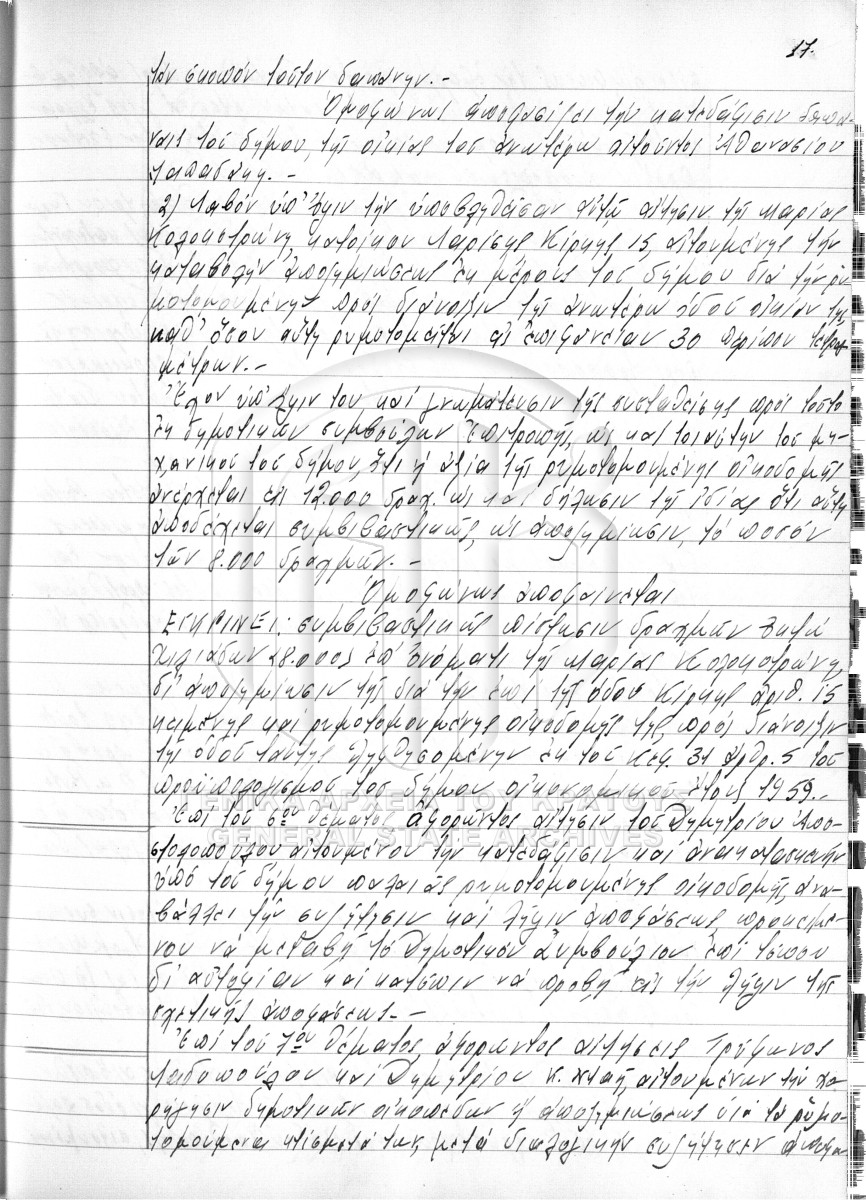 17.
τόν σκοπόν τοῦτον δαπάνην.-
Ὁμοφώνως ἀποφασίζει τήν κατεδάφισιν δαπά-
ναις τοῦ δήμου, τῆς οἰκίας τοῦ ἀνωτέρω αἰτοῦντος Ἀθανασίου
2) Λαβόν ὑπ' ὄψιν τήν ὑποβληθεῖσαν αὐτῷ αἴτησιν τῆς Μαρίας
Κολοκοτρώνη, κατοίκου Λαρίσης Κίρκης 15, αἰτουμένης τήν
καταβολήν ἀποζημιώσεως ἐκ μέρους τοῦ δήμου διά τήν ρυ-
μοτομουμένην πρός διάνοιξιν τῆς ἀνωτέρω ὁδοῦ οἰκίαν της
καθ' ὅσον αὕτη ρυμοτομεῖται εἰς ἐπιφάνειαν 30 περίπου τετραγ.
μέτρων.-
Ἔχον ὑπ' ὄψιν του καί γνωμάτευσιν τῆς συσταθείσης πρός τοῦτο
ἐκ δημοτικῶν συμβούλων Ἐπιτροπῆς, ὡς καί τοιαύτην τοῦ μη-
χανικοῦ τοῦ δήμου, ὅτι ἡ ἀξία τῆς ρυμοτομουμένης οἰκοδομῆς
ἀνέρχεται εἰς 12.000 δραχ. ὡς καί δήλωσιν τῆς ἰδίας ὅτι αὕτη
ἀποδέχεται συμβιβαστικῶς, ὡς ἀποζημίωσιν, τό ποσόν
τῶν 8.000 δραχμῶν.-
Ὁμοφώνως ἀποφαίνεται
ΕΓΚΡΙΝΕΙ: συμβιβαστικῶς πίστωσιν δραχμῶν ὀκτώ
χιλιάδων (8.000) ἐπ' ὀνόματι τῆς Μαρίας Κολοκοτρώνη,
δι' ἀποζημίωσιν τῆς διά τήν ἐπί τῆς ὁδοῦ Κίρκης ἀριθ. 15
κειμένης καί ρυμοτομουμένης οἰκοδομῆς της, πρός διάνοιξιν
τῆς ὁδοῦ ταύτης ληφθησομένην ἐκ τοῦ Κεφ. 31 ἀρθρ. 5 τοῦ
προϋπολογισμοῦ τοῦ δήμου οἰκονομικοῦ ἔτους 1959.-
ΓΕΝΙΚΑ ΑΡΧΕΙΑ ΤΟΥ ΚΡΑΤΟΥΣ
GENERAL STATE ARCHIVES
Ἐπί τοῦ 6ου θέματος ἀφορῶντος αἴτησιν τοῦ Δημητρίου Ἀπο-
στολοπούλου αἰτουμένου τήν κατεδάφισιν καί ἀνακατασκευήν
ὑπό τοῦ δήμου παλαιᾶς ρυμοτομουμένης οἰκοδομῆς, ἀνα-
βάλλει τήν συζήτησιν καί λῆψιν ἀποφάσεως, προκειμέ-
νου νά μεταβῇ τό Δημοτικόν Συμβούλιον ἐπί τόπου
δι' αὐτοψίαν καί κατόπιν νά προβῇ εἰς τήν λῆψιν τῆς
σχετικῆς ἀποφάσεως.-
Ἐπί τοῦ 7ου θέματος, ἀφορῶντος αἰτήσεις Τρύφωνος
καί Δημητρίου αἰτουμένων τήν χο-
ρήγησιν δημοτικῶν οἰκοπέδων ἤ ἀποζημιώσεως διά τά ρυμο-
τομούμενα κτίσματά των, μετά διαλογικήν συζήτησιν